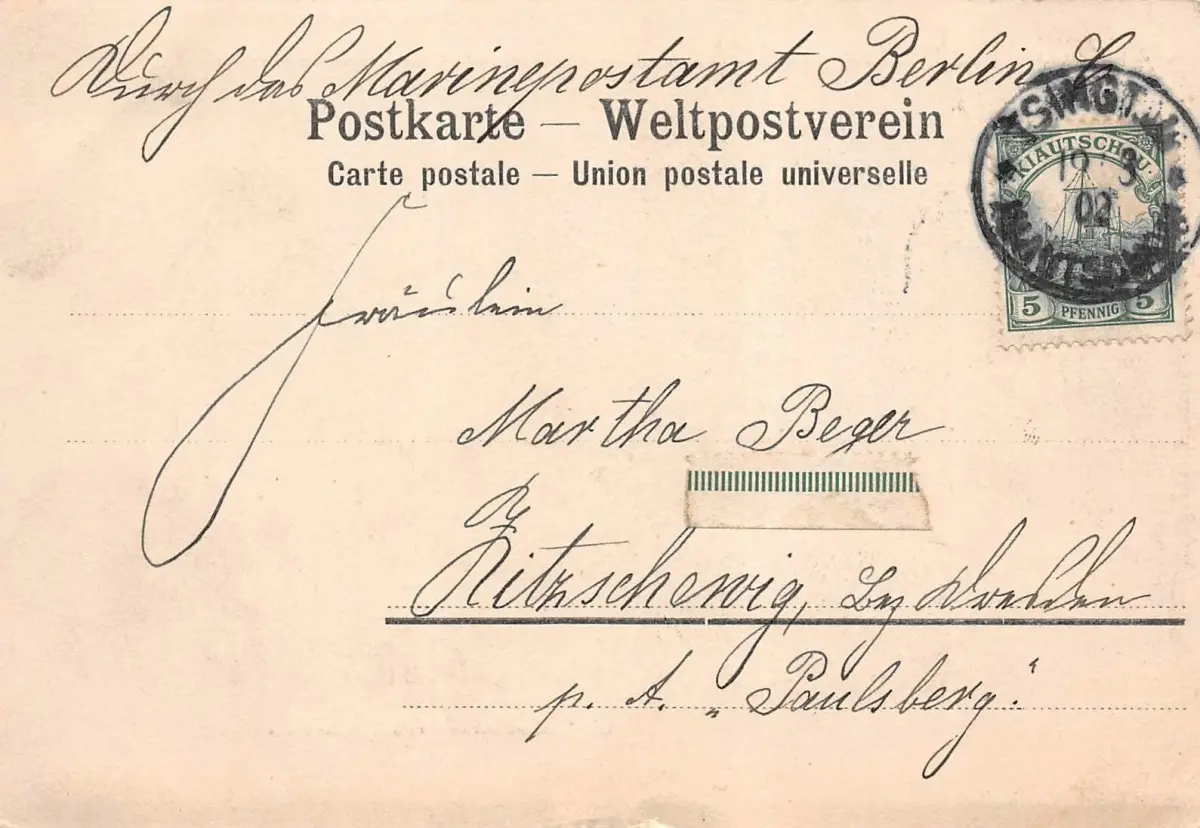 Durch das Marinepostamt Berlin C
Postkarte — Weltpostverein
Carte postale — Union postale universelle
TSINGTAU
KIAUTSCHOU
19 3
02
KIAUTSCHOU
5 PFENNIG 5
Fräulein
Martha Beger
Zitzschewig, bez Dresden
p. A. „Paulsberg."